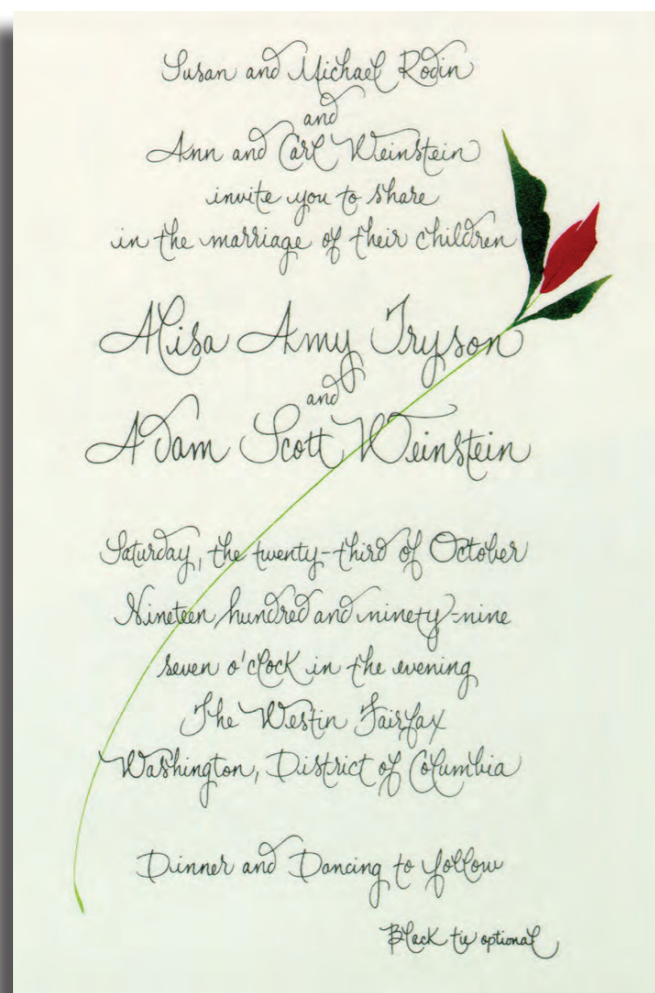 Susan and Michael Rodin
and
Ann and Carl Weinstein
invite you to share
in the marriage of their children
Alisa Amy Tryson
and
Adam Scott Weinstein
Saturday, the twenty-third of October
Nineteen hundred and ninety-nine
seven o'clock in the evening
The Westin Fairfax
Washington, District of Columbia
Dinner and Dancing to follow
Black tie optional